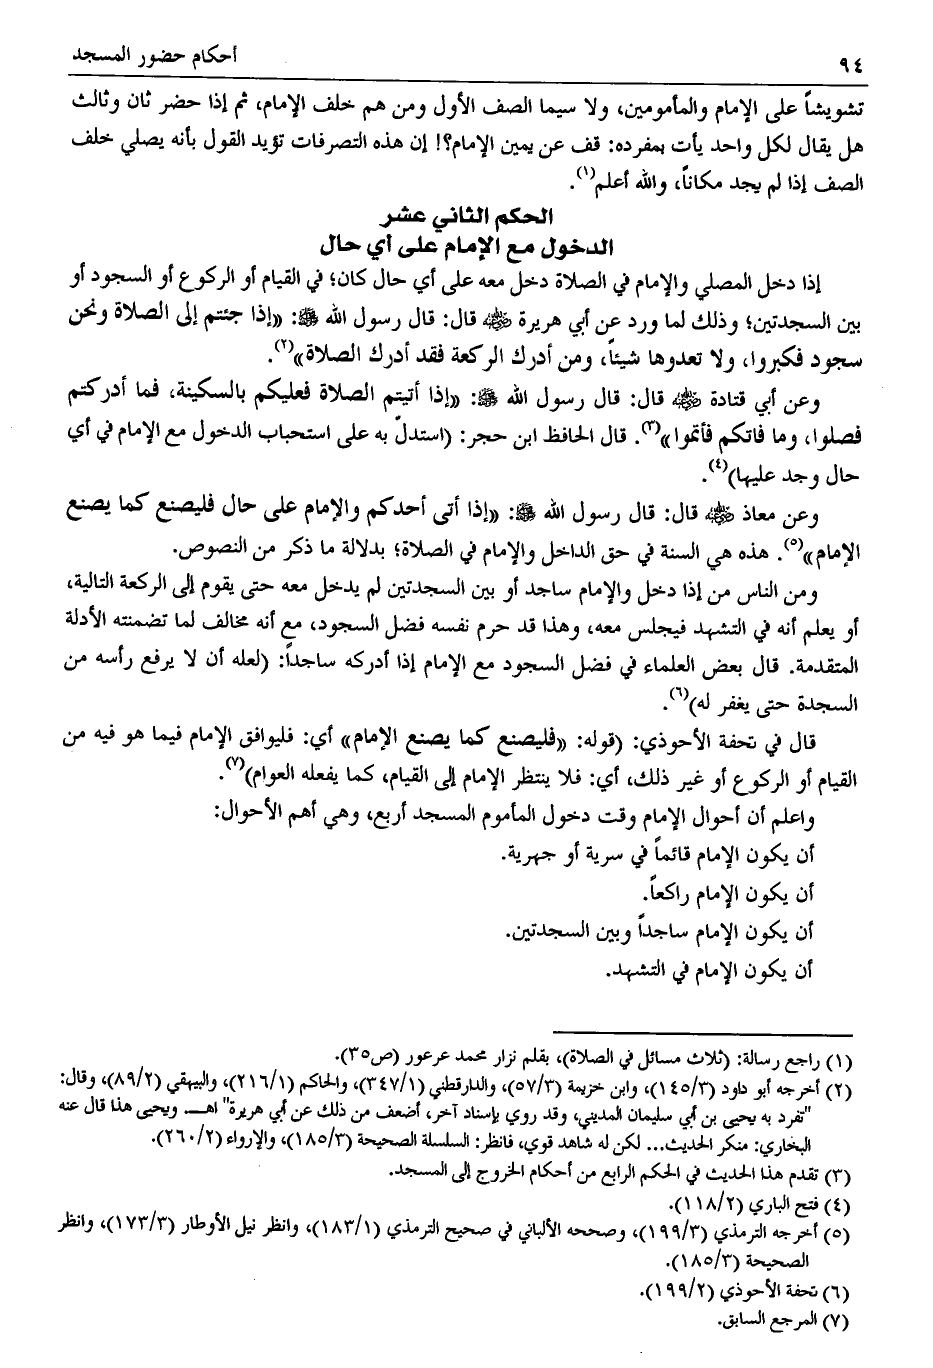 ٩٤
أحكام حضور المسجد
تشويشاً على الإمام والمأمومين، ولا سيما الصف الأول ومن هم خلف الإمام، ثم إذا حضر ثان وثالث
هل يقال لكل واحد يأت بمفرده: قف عن يمين الإمام؟! إن هذه التصرفات تؤيد القول بأنه يصلي خلف
الصف إذا لم يجد مكاناً، والله أعلم(١).
الحكم الثاني عشر
الدخول مع الإمام على أي حال
إذا دخل المصلي والإمام في الصلاة دخل معه على أي حال كان؛ في القيام أو الركوع أو السجود أو
بين السجدتين؛ وذلك لما ورد عن أبي هريرة ﷺ قال: قال رسول الله ﷺ: «إذا جئتم إلى الصلاة ونحن
سجود فكبروا، ولا تعدوها شيئاً، ومن أدرك الركعة فقد أدرك الصلاة»(٢).
وعن أبي قتادة رضي الله عنه قال: قال رسول الله ﷺ: «إذا أتيتم الصلاة فعليكم بالسكينة، فما أدركتم
فصلوا، وما فاتكم فأتموا»(٣). قال الحافظ ابن حجر: (استدلّ به على استحباب الدخول مع الإمام في أي
حال وجد عليها)(٤).
وعن معاذ رضي الله عنه قال: قال رسول الله ﷺ: «إذا أتى أحدكم والإمام على حال فليصنع كما يصنع
الإمام»(٥). هذه هي السنة في حق الداخل والإمام في الصلاة؛ بدلالة ما ذكر من النصوص.
ومن الناس من إذا دخل والإمام ساجد أو بين السجدتين لم يدخل معه حتى يقوم إلى الركعة التالية،
أو يعلم أنه في التشهد فيجلس معه، وهذا قد حرم نفسه فضل السجود، مع أنه مخالف لما تضمنته الأدلة
المتقدمة. قال بعض العلماء في فضل السجود مع الإمام إذا أدركه ساجداً: (لعله أن لا يرفع رأسه من
السجدة حتى يغفر له)(٦).
قال في تحفة الأحوذي: (قوله: «فليصنع كما يصنع الإمام» أي: فليوافق الإمام فيما هو فيه من
القيام أو الركوع أو غير ذلك، أي: فلا ينتظر الإمام إلى القيام، كما يفعله العوام)(٧).
واعلم أن أحوال الإمام وقت دخول المأموم المسجد أربع، وهي أهم الأحوال:
أن يكون الإمام قائماً في سرية أو جهرية.
أن يكون الإمام راكعاً.
أن يكون الإمام ساجداً وبين السجدتين.
أن يكون الإمام في التشهد.
(١) راجع رسالة: (ثلاث مسائل في الصلاة)، بقلم نزار محمد عرعور (ص٣٥).
(٢) أخرجه أبو داود (١٤٥/٣)، وابن خزيمة (٥٧/٣)، والدارقطني (٣٤٧/١)، والحاكم (٢١٦/١)، والبيهقي (٨٩/٢)، وقال:
"تفرد به يحيى بن أبي سليمان المديني، وقد روي بإسناد آخر، أضعف من ذلك عن أبي هريرة" اهـ. ويحيى هذا قال عنه
البخاري: منكر الحديث... لكن له شاهد قوي، فانظر: السلسلة الصحيحة (١٨٥/٣)، والإرواء (٢٦٠/٢).
(٣) تقدم هذا الحديث في الحكم الرابع من أحكام الخروج إلى المسجد.
(٤) فتح الباري (١١٨/٢).
(٥) أخرجه الترمذي (١٩٩/٣)، وصححه الألباني في صحيح الترمذي (١٨٣/١)، وانظر نيل الأوطار (١٧٣/٣)، وانظر
الصحيحة (١٨٥/٣).
(٦) تحفة الأحوذي (١٩٩/٢).
(٧) المرجع السابق.